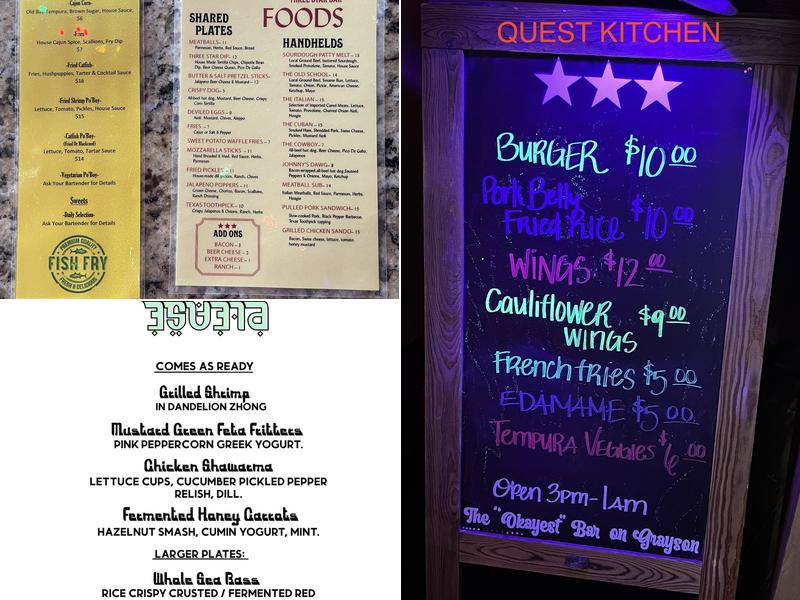 -Cajun Corn-
Old Bay Tempura, Brown Sugar, House Sauce
$6
-Fries-
House Cajun Spice, Scallions, Fry Dip
$7
-Fried Catfish-
Fries, Hushpuppies, Tarter & Cocktail Sauce
$16
-Fried Shrimp Po'Boy-
Lettuce, Tomato, Pickles, House Sauce
$15
-Catfish Po'Boy-
(Fried Or Blackened)
Lettuce, Tomato, Tartar Sauce
$14
-Vegetarian Po'Boy-
Ask Your Bartender for Details
Sweets
-Daily Selection-
Ask Your Bartender for Details
PREMIUM QUALITY
FISH FRY
FRESH & DELICIOUS
THREE STAR BAR
FOODS
SHARED
PLATES
MEATBALLS- 11
Parmesan, Herbs, Red Sauce, Bread
THREE STAR DIP- 13
House Made Tortilla Chips, Chipotle Bean
Dip, Beer Cheese Queso, Pico De Gallo
BUTTER & SALT PRETZEL STICKS-
Jalapeno Beer Cheese & Mustard – 12
CRISPY DOG- 5
All-beef hot dog, Mustard, Beer Cheese, Crispy
Corn Tortilla
DEVILED EGGS – 8
Aioli, Mustard, Chives, Aleppo
FRIES – 7
Cajun or Salt & Pepper
SWEET POTATO WAFFLE FRIES – 7
MOZZARELLA STICKS – 11
Hand Breaded & Fried, Red Sauce, Herbs,
Parmesan
FRIED PICKLES – 11
House-made dill pickles, Ranch, Chives
JALAPENO POPPERS – 11
Cream Cheese, Chorizo, Bacon, Scallions,
Ranch Dressing
TEXAS TOOTHPICK – 10
Crispy Jalapenos & Onions, Ranch, Herbs
ADD ONS
BACON – 3
BEER CHEESE – 2
EXTRA CHEESE – 1
RANCH – 1
HANDHELDS
SOURDOUGH PATTY MELT – 13
Local Ground Beef, buttered Sourdough,
Smoked Provolone, Tomato, House Sauce
THE OLD SCHOOL – 14
Local Ground Beef, Sesame Bun, Lettuce,
Tomato, Onion, Pickle, American Cheese,
Ketchup, Mayo
THE ITALIAN – 15
Selection of Imported Cured Meats, Lettuce,
Tomato, Provolone, Charred Onion Aioli,
Hoagie
THE CUBAN – 15
Smoked Ham, Shredded Pork, Swiss Cheese,
Pickles, Mustard Aioli
THE COWBOY – 7
All-beef hot dog, Beer Cheese, Pico De Gallo,
Jalapenos
JOHNNY'S DAWG – 8
Bacon-wrapped,all-beef hot dog,Sauteed
Peppers & Onions, Mayo, Ketchup
MEATBALL SUB- 14
Italian Meatballs, Red Sauce, Parmesan, Herbs,
Hoagie
PULLED PORK SANDWICH – 15
Slow-cooked Pork, Black Pepper Barbecue,
Texas Toothpick topping
GRILLED CHICKEN SANDO – 15
Bacon, Swiss cheese, lettuce, tomato,
honey mustard
PLEASE
COMES AS READY
Grilled Shrimp
IN DANDELION ZHONG
Mustard Green Feta Fritters
PINK PEPPERCORN GREEK YOGURT.
Chicken Shawarma
LETTUCE CUPS, CUCUMBER PICKLED PEPPER
RELISH, DILL.
Fermented Honey Carrots
HAZELNUT SMASH, CUMIN YOGURT, MINT.
LARGER PLATES:
Whole Sea Bass
RICE CRISPY CRUSTED / FERMENTED RED
QUEST KITCHEN
BURGER $10 00
Pork Belly
Fried Rice $10 00
WINGS $12 00
Cauliflower $9 00
WINGS
French fries $5 00
EDAMAME $5 00
Tempura Veggies $6 00
Open 3pm-1am
The "Okayest" Bar on Grayson